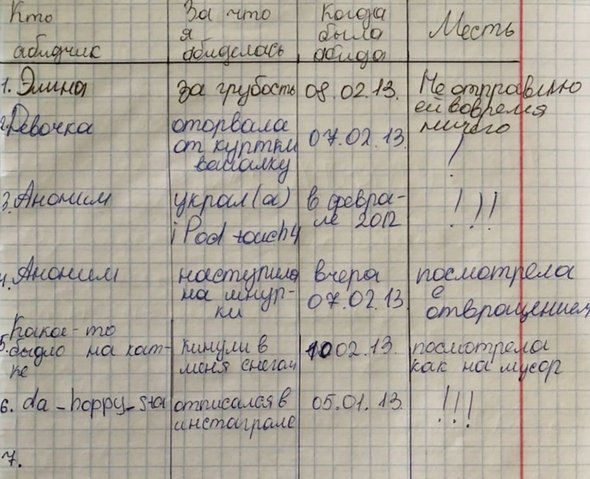 Кто абидчик
За что я абиделась
Когда была абида
Месть
1. Элина
за грубость
08.02.13.
Не отправлю ей вовремя ничего
2. Девочка
оторвала от куртки вешалку
07.02.13.
!
3. Аноним
украл(а) iPod touch4
в февра-
ле 2012
!!!
4. Аноним
наступила на шнур-
ки
вчера 07.02.13
посмотрела с отвращением
5. Какое-то быдло на кат-
ке
кинули в меня снегом
10 02.13.
посмотрела как на мусор
6. da_hoppy_sta
отписался в инстаграме
05.01.13.
!!!
7.